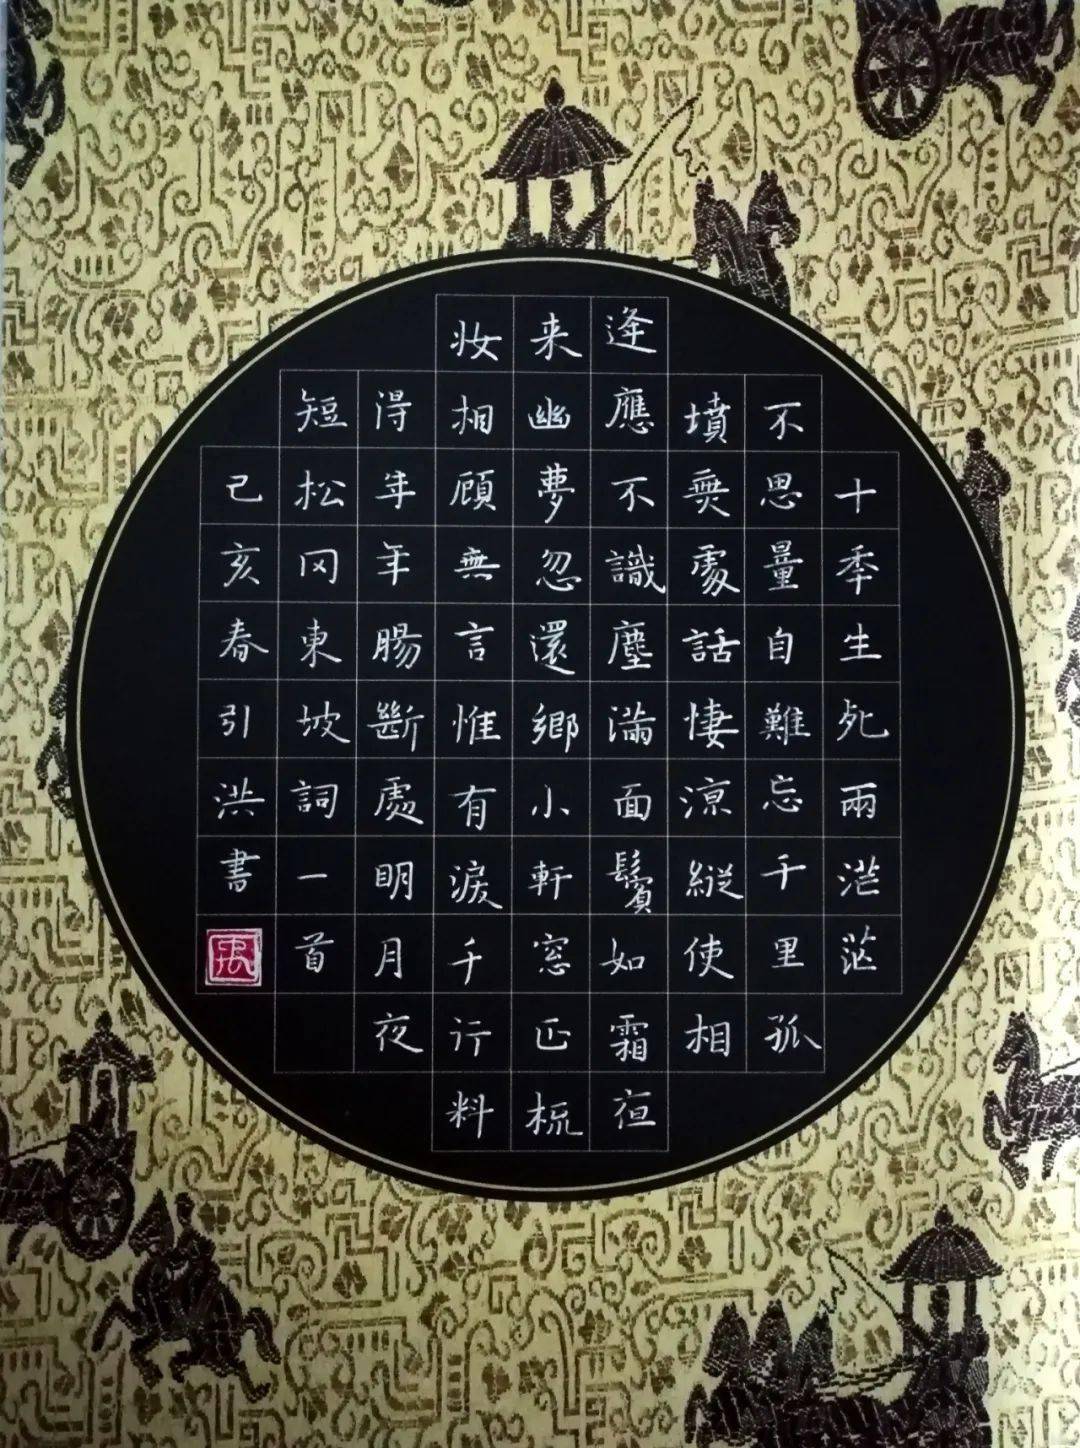 十秊生死兩茫茫
不思量自難忘千里孤
墳無處話悽涼縱使相
逢應不識塵滿面鬢如霜夜
来幽夢忽還鄉小軒窓正梳
妝相顧無言惟有淚千行料
得年年腸斷處明月夜
短松冈東坡詞一首
己亥春引洪書